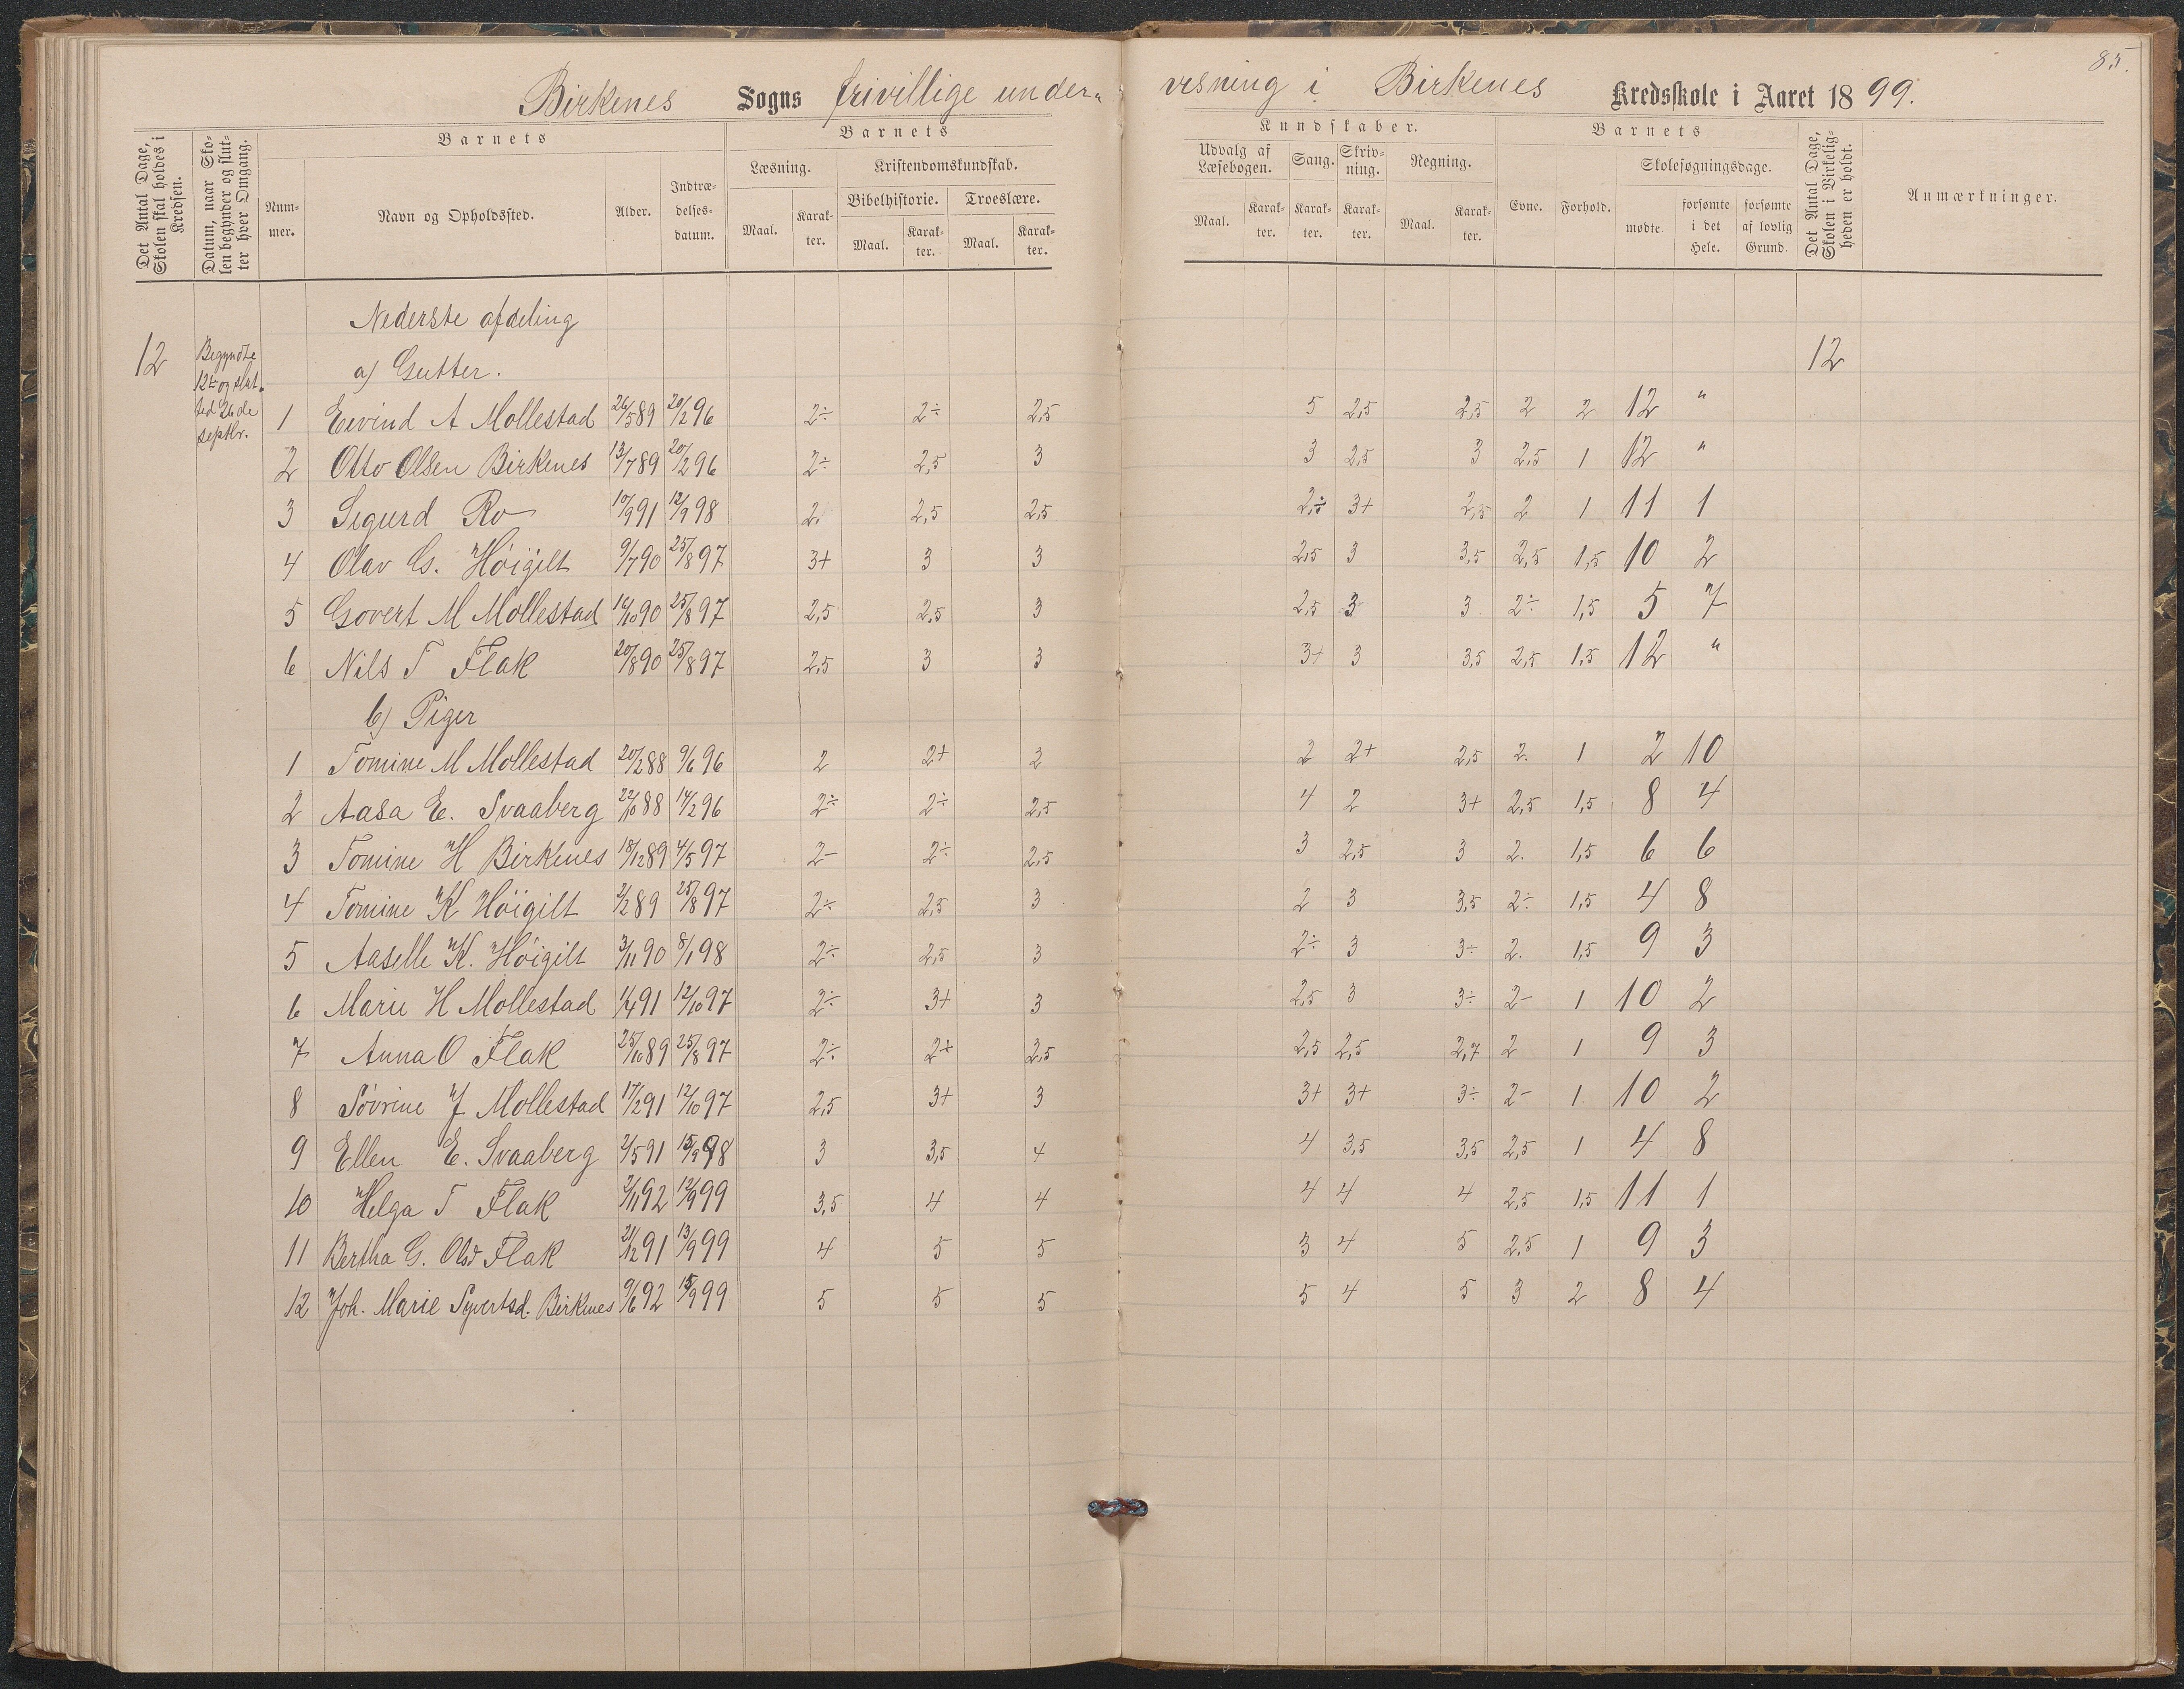 85.
Birkenes Sogns frivillige under- visning i Birkenes Kredsskole i Aaret 1899.
Det Antal Dage, Skolen skal holdes i Kredsen.
Datum, naar Skolen begynder og slutter hver Omgang.
Barnets
Nummer.
Navn og Opholdssted.
Alder.
Indtrædelsesdatum.
Barnets
Læsning.
Maal.
Karakter.
Kristendomskundskab.
Bibelhistorie.
Maal.
Karakter.
Troeslære.
Maal.
Karakter.
Kundskaber.
Udvalg af Læsebogen.
Maal.
Karakter.
Sang.
Karakter.
Skrivning.
Karakter.
Regning.
Maal.
Karakter.
Barnets
Evne.
Forhold.
Skolesøgningsdage.
mødte
forsømte i det Hele.
forsømte af lovlig Grund.
Det Antal Dage, Skolen i Virkeligheden er holdt.
Anmærkninger.
Nederste afdeling
12 Begyndte 12te og slut- ted 26de septbr.
a) Gutter. 12
1 Eivind A Mollestad 26/5 89 20/2 96 2÷ 2÷ 2,5 5 2,5 2,5 2 2 12 "
2 Otto Olsen Birkenes 13/7 89 20/2 96 2÷ 2,5 3 3 2,5 3 2,5 1 12 "
3 Sigurd Ro 10/9 91 12/9 98 2. 2,5 2,5 2,÷ 3+ 2,5 2 1 11 1
4 Olav G. Höigilt 9/7 90 25/8 97 3+ 3 3 2,5 3 3,5 2,5 1,5 10 2
5 Govert M Mollestad 16/10 90 25/8 97 2,5 2,5 3 2,5 3 3 2÷ 1,5 5 7
6 Nils T Flak 20/8 90 25/8 97 2,5 3 3 3+ 3 3,5 2,5 1,5 12 "
b) Piger
1 Tomine M Mollestad 20/2 88 9/6 96 2 2+ 2 2 2+ 2,5 2. 1 2 10
2 Aasa E. Svaaberg 22/10 88 14/2 96 2÷ 2÷ 2,5 4 2 3+ 2,5 1,5 8 4
3 Tomine H Birkenes 18/12 89 4/5 97 2- 2÷ 2,5 3 2,5 3 2. 1,5 6 6
4 Tomine K Höigilt 2/2 89 25/8 97 2÷ 2,5 3 2 3 3,5 2÷ 1,5 4 8
5 Aaselle K. Höigilt 3/11 90 8/1 98 2÷ 2,5 3 2÷ 3 3÷ 2. 1,5 9 3
6 Marie H Mollestad 1/4 91 12/10 97 2÷ 3+ 3 2,5 3 3÷ 2- 1 10 2
7 Anna O Flak 25/10 89 25/8 97 2÷ 2+ 2,5 2,5 2,5 2,7 2 1 9 3
8 Sövrine J Mollestad 17/2 91 12/10 97 2,5 3+ 3 3+ 3+ 3÷ 2- 1 10 2
9 Ellen E. Svaaberg 2/5 91 15/9 98 3 3,5 4 4 3,5 3,5 2,5 1 4 8
10 Helga T Flak 2/11 92 12/9 99 3,5 4 4 4 4 4 2,5 1,5 11 1
11 Bertha G. Olsd Flak 21/12 91 13/9 99 4 5 5 3 4 5 2,5 1 9 3
12 Joh. Marie Syvertsd. Birkenes 9/6 92 15/9 99 5 5 5 5 4 5 3 2 8 4